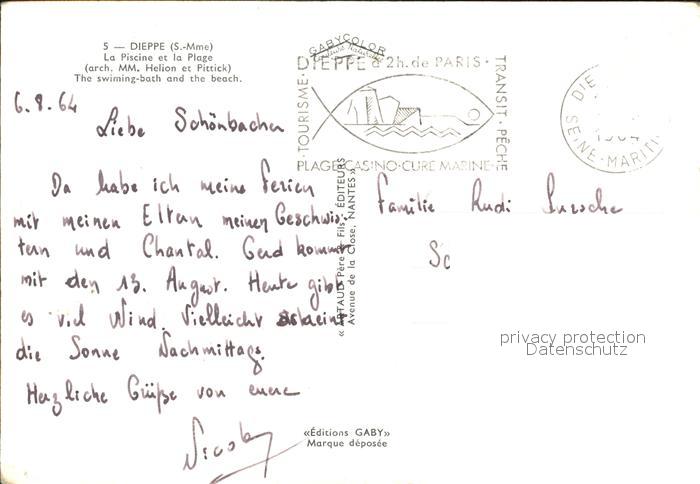 5 — DIEPPE (S.-Mme)
La Piscine et la Plage
(arch. MM. Helion et Pittick)
The swiming-bath and the beach.
6.8.64
Liebe Schönbacher
Da habe ich meine Ferien
mit meinen Eltern meinen Geschwis-
tern und Chantal. Gerd kommt
mit den 13. August. Heute gibt
es viel Wind. Vielleicht scheint
die Sonne Nachmittags.
Herzliche Grüße von euere
GABYCOLOR
DIEPPE à 2h. de PARIS
TOURISME
TRANSIT · PÊCHE
PLAGE·CASINO·CURE MARINE
DIE
1964
SEINE-MARITI
« ARTAUD Père et Fils, ÉDITEURS
Avenue de la Close, NANTES »
Familie Rudi
Sc
privacy protection
Datenschutz
«Éditions GABY»
Marque déposée